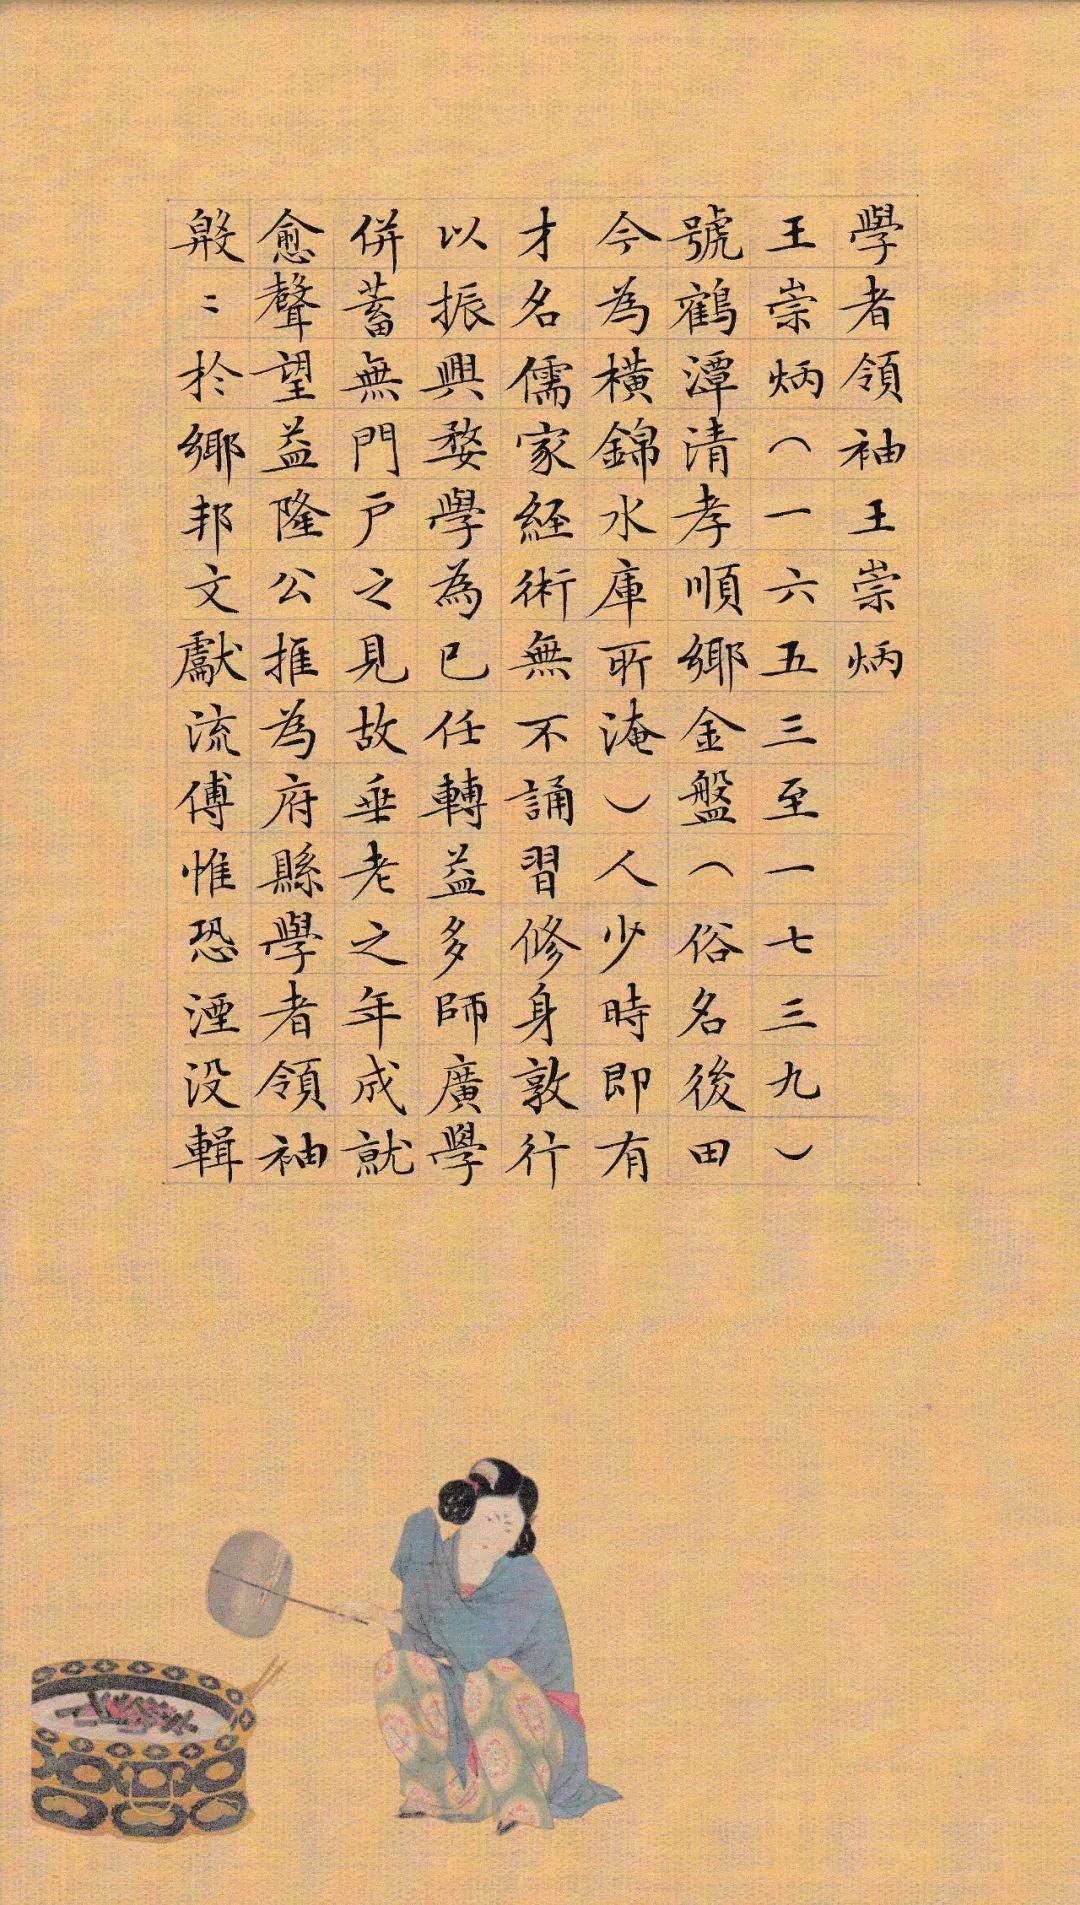 學者領袖王崇炳
王崇炳（一六五三至一七三九）
號鶴潭清孝順鄉金盤（俗名後田
今為橫錦水庫所淹）人少時即有
才名儒家経術無不誦習修身敦行
以振興婺學為已任轉益多師廣學
併蓄無門户之見故垂老之年成就
愈聲望益隆公推為府縣學者領袖
〻於鄉邦文獻流傳惟恐湮没輯